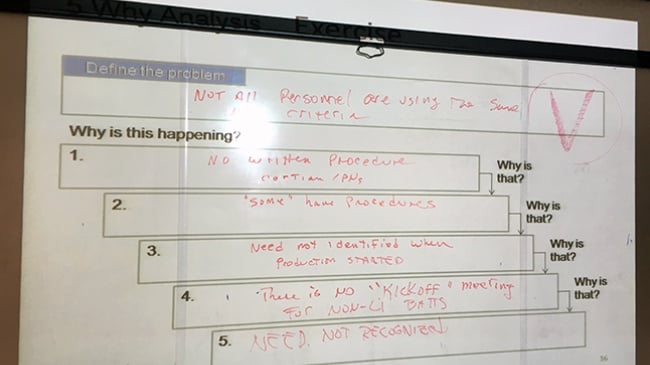 5 Why Analysis Exercise
Define the problem
NOT All Personnel are using The Same
criteria
V
Why is this happening?
1.
NO written Procedure
Why is
that?
2.
"Some" have Procedures
Why is
that?
3.
Need not identified when
Production STARTED
Why is
that?
4.
There is NO "KICKOFF" meeting
FOR NON-LI BATTS
Why is
that?
5.
NEED NOT RECOGNIZED
36